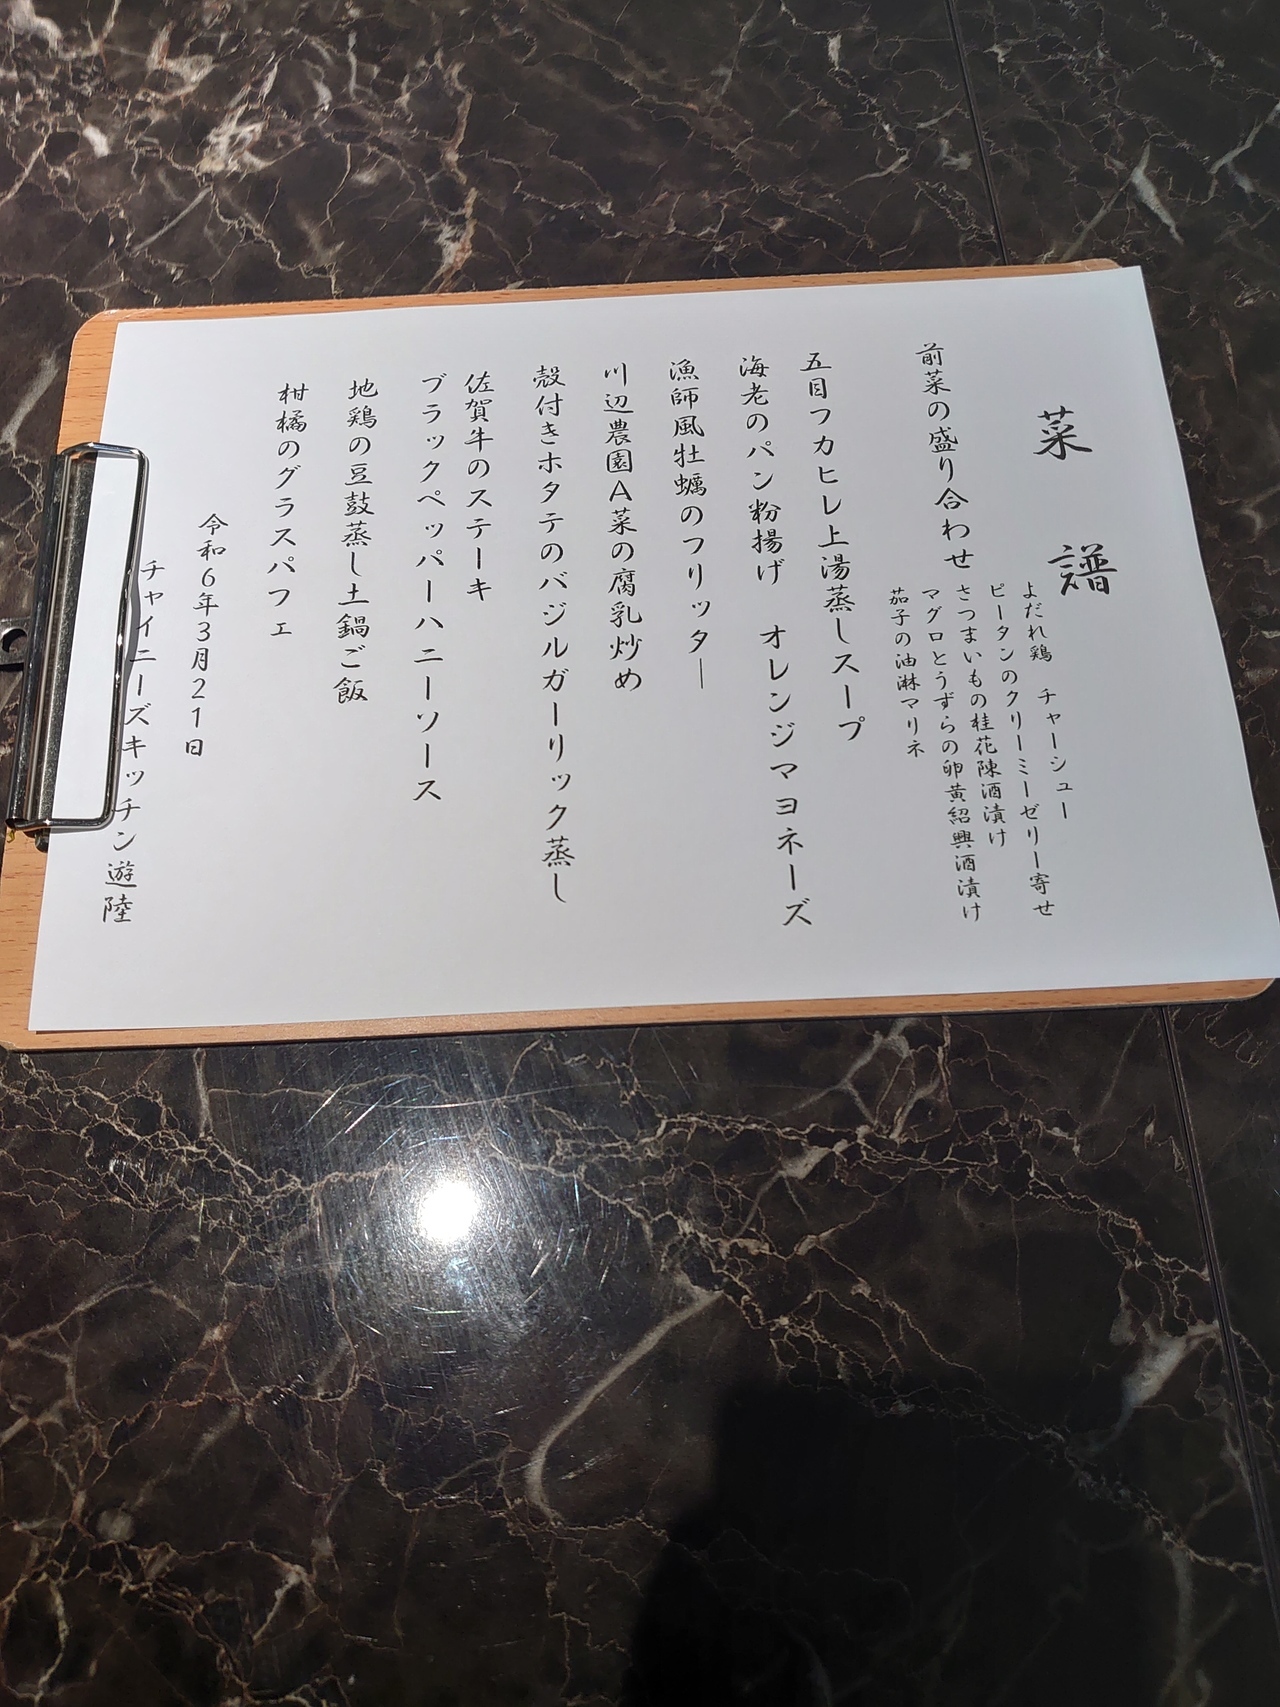 菜譜
前菜の盛り合わせ
よだれ鶏　チャーシュー
ピータンのクリーミーゼリー寄せ
さつまいもの桂花陳酒漬け
マグロとうずらの卵黄紹興酒漬け
茄子の油淋マリネ
五目フカヒレ上湯蒸しスープ
海老のパン粉揚げ　オレンジマヨネーズ
漁師風牡蠣のフリッター
川辺農園A菜の腐乳炒め
殻付きホタテのバジルガーリック蒸し
佐賀牛のステーキ
ブラックペッパーハニーソース
地鶏の豆鼓蒸し土鍋ご飯
柑橘のグラスパフェ
令和6年3月21日
チャイニーズキッチン遊陸